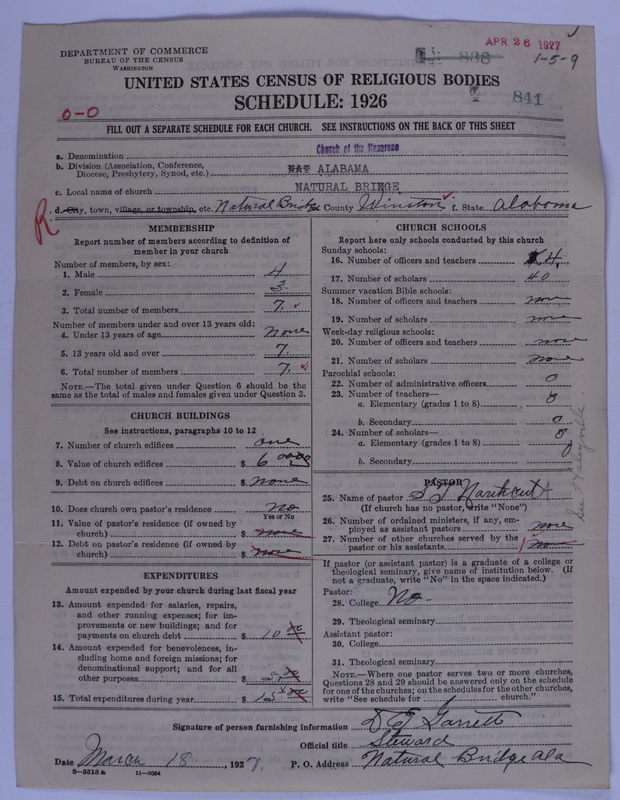 DEPARTMENT OF COMMERCE
BUREAU OF THE CENSUS
WASHINGTON
APR 26 1927
838
1-5-9
UNITED STATES CENSUS OF RELIGIOUS BODIES
SCHEDULE: 1926
841
0-0
FILL OUT A SEPARATE SCHEDULE FOR EACH CHURCH. SEE INSTRUCTIONS ON THE BACK OF THIS SHEET
a. Denomination Church of the Nazarene
b. Division (Association, Conference, Diocese, Presbytery, Synod, etc.) NAT ALABAMA
c. Local name of church NATURAL BRIDGE
R. d. City, town, village, or township, etc. Natural Bridge County Winston f. State Alabama
MEMBERSHIP
Report number of members according to definition of
member in your church
Number of members, by sex:
1. Male 4
2. Female 3
3. Total number of members 7
Number of members under and over 13 years old:
4. Under 13 years of age none
5. 13 years old and over 7
6. Total number of members 7
NOTE.—The total given under Question 6 should be the
same as the total of males and females given under Question 3.
CHURCH BUILDINGS
See instructions, paragraphs 10 to 12
7. Number of church edifices one
8. Value of church edifices $ 600
9. Debt on church edifices $ none
10. Does church own pastor's residence no
Yes or No
11. Value of pastor's residence (if owned by
church) $ none
12. Debt on pastor's residence (if owned by
church) $ none
EXPENDITURES
Amount expended by your church during last fiscal year
13. Amount expended for salaries, repairs,
and other running expenses; for im-
provements or new buildings; and for
payments on church debt $ 10 00
14. Amount expended for benevolences, in-
cluding home and foreign missions; for
denominational support; and for all
other purposes $ 5 00
15. Total expenditures during year $ 15 00
CHURCH SCHOOLS
Report here only schools conducted by this church
Sunday schools:
16. Number of officers and teachers 4
17. Number of scholars 40
Summer vacation Bible schools:
18. Number of officers and teachers none
19. Number of scholars none
Week-day religious schools:
20. Number of officers and teachers none
21. Number of scholars none
Parochial schools:
22. Number of administrative officers 0
23. Number of teachers—
a. Elementary (grades 1 to 8) 0
b. Secondary 0
24. Number of scholars—
a. Elementary (grades 1 to 8) 0
b. Secondary 0
See Haleyville
PASTOR
25. Name of pastor
(If church has no pastor, write "None")
26. Number of ordained ministers, if any, em-
ployed as assistant pastors none
27. Number of other churches served by the
pastor or his assistants 1 no
If pastor (or assistant pastor) is a graduate of a college or
theological seminary, give name of institution below. (If
not a graduate, write "No" in the space indicated.)
Pastor:
28. College No
29. Theological seminary
Assistant pastor:
30. College
31. Theological seminary
NOTE.—Where one pastor serves two or more churches,
Questions 28 and 29 should be answered only on the schedule
for one of the churches; on the schedules for the other churches,
write "See schedule for church."
Signature of person furnishing information D E Garrett
Official title Steward
Date March 18, 1927. P. O. Address Natural Bridge Ala
8-5518 a 11-9054